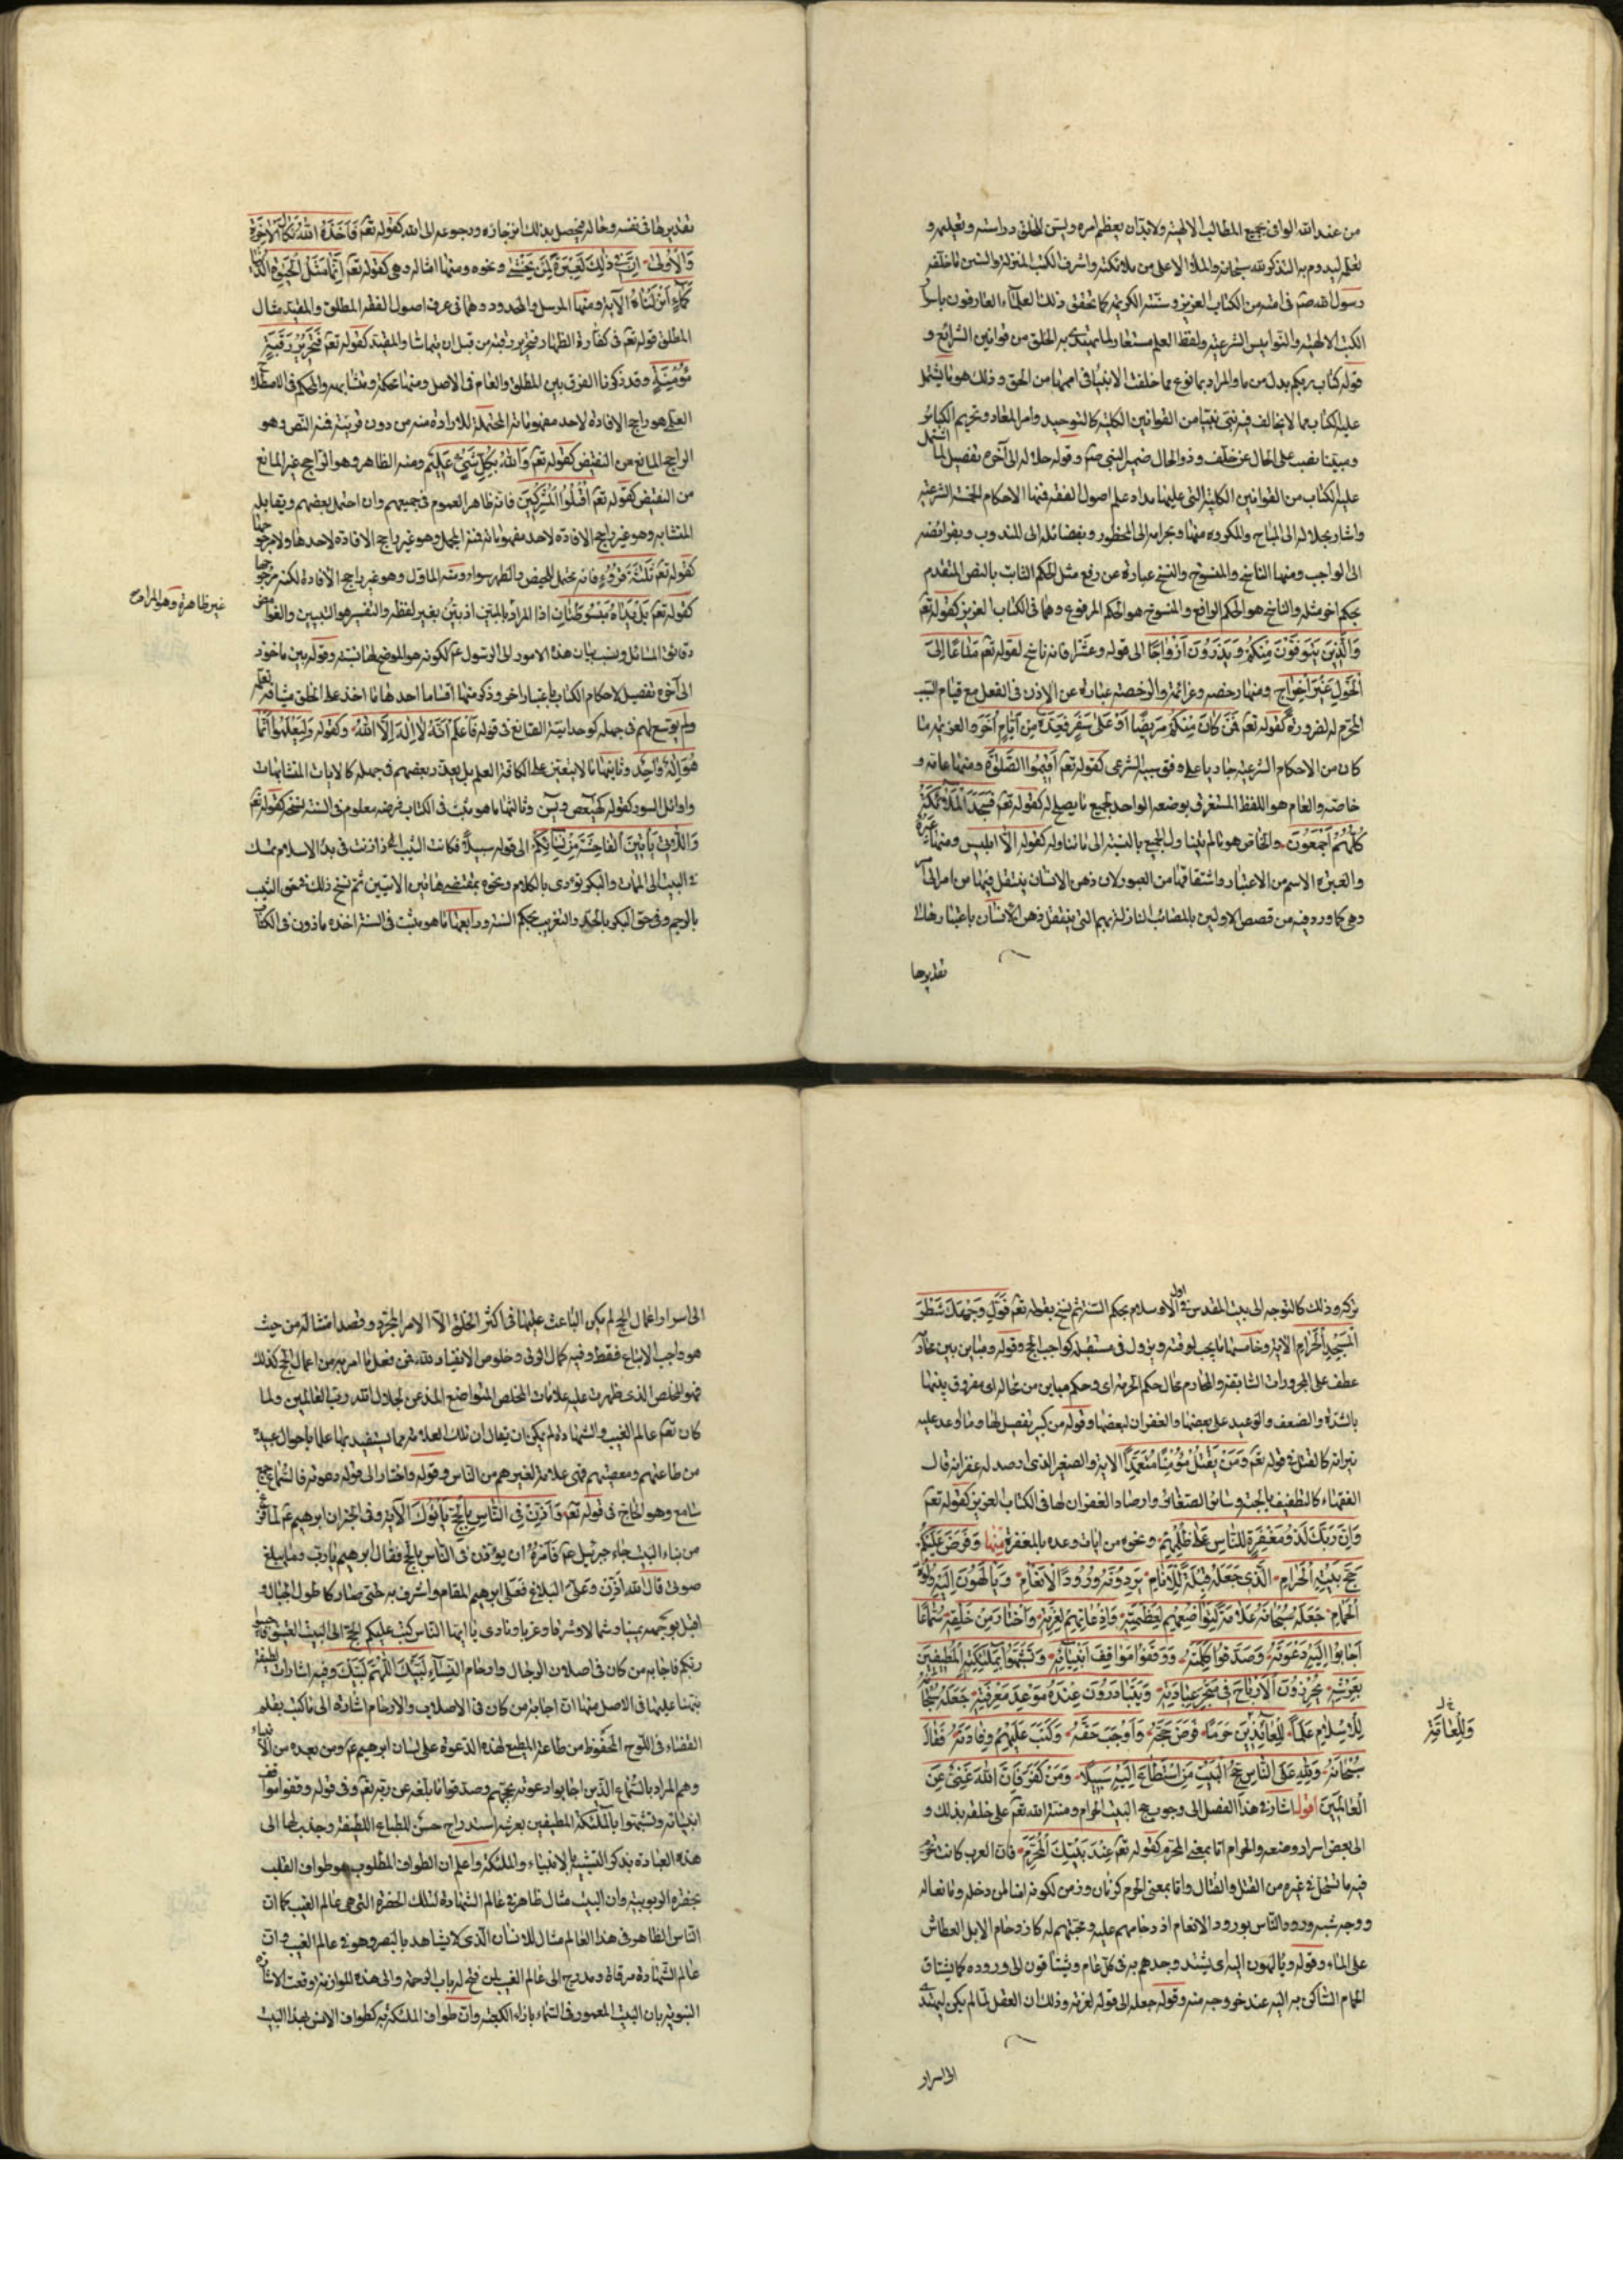 من عند الله الوافى بجميع المطالب الالهية ولا بد ان يعظم امره وليس للخلق دراسته وتعليمه و
تعلمه ليدوم به التذكر لله سبحانه والملأ الاعلى من ملائكته واشرف الكتب المنزلة والسنن ما خلفه
رسول الله صم فى امته من الكتاب العزيز وسنته الكريمة كما تحقق ذلك العلماء العارفون باسرار
الكتب الالهية والنواميس الشرعية ولفظ العلم مستعار لما يهتدى به الخلق من قوانين الشرائع و
قوله كتاب ربكم بدل من ما والمراد بما نوع مما خلفت الانبياء فى اممها من الحق وذلك هو ما اشتمل
عليه الكتاب مما لا يخالف فيه نبى نبيا من القوانين الكلية كالتوحيد وامر المعاد وتحريم الكبائر
ومبينا نصب على الحال عن خلف وذو الحال ضمير النبى صم وقوله حلاله الى آخره تفصيل لما اشتمل
عليه الكتاب من القوانين الكلية التى عليها مدار علم اصول الفقه فمنها الاحكام الخمسة الشرعية
واشار بحلاله الى المباح والمكروه منها وبحرامه الى المحظور وبفضائله الى المندوب وبفرائضه
الى الواجب ومنها الناسخ والمنسوخ والنسخ عبارة عن رفع مثل الحكم الثابت بالنص المتقدم
بحكم آخر مثله والناسخ هو الحكم الرافع والمنسوخ هو الحكم المرفوع وهما فى الكتاب العزيز كقوله تعم
وَالَّذِينَ يُتَوَفَّوْنَ مِنْكُمْ وَيَذَرُونَ أَزْوَاجًا الى قوله وعشرا فانه ناسخ لقوله تعم مَتَاعًا إِلَى
الْحَوْلِ غَيْرَ إِخْرَاجٍ ومنها رخصه وعزائمه والرخصة عبارة عن الاذن فى الفعل مع قيام السبب
المحرم له لضرورة كقوله تعم فَمَنْ كَانَ مِنْكُمْ مَرِيضًا أَوْ عَلَى سَفَرٍ فَعِدَّةٌ مِنْ أَيَّامٍ أُخَرَ والعزيمة ما
كان من الاحكام الشرعية جاريا على وفق سببه الشرعى كقوله تعم أَقِيمُوا الصَّلوةَ ومنها عامه و
خاصه والعام هو اللفظ المستغرق بوضعه الواحد لجميع ما يصلح له كقوله تعم فَسَجَدَ الْمَلٰئِكَةُ
كُلُّهُمْ أَجْمَعُونَ والخاص هو ما لم يتناول الجميع بالنسبة الى ما تناوله كقوله الا ابليس ومنها عبره
والعبرة الاسم من الاعتبار واشتقاقها من العبور لان ذهن الانسان ينتقل فيها من امر الى آخر
وهى كما ورد فيه من قصص الاولين بالمصائب النازلة بهم التى ينتقل ذهن الانسان باعتبارها الى
تقديرها
تقديرها فى نفسه وحاله فيحصل بذلك انزجاره ورجوعه الى الله كقوله تعم فَأَخَذَهُ اللهُ نَكَالَ الْآخِرَةِ
وَالْأُولَى إِنَّ فِي ذٰلِكَ لَعِبْرَةً لِمَنْ يَخْشَى ونحوه ومنها امثاله وهى كقوله تعم إِنَّمَا مَثَلُ الْحَيٰوةِ الدُّنْيَا
كَمَاءٍ أَنْزَلْنَاهُ الآية ومنها المرسل والمحدود وهما فى عرف اصول الفقه المطلق والمقيد مثال
المطلق قوله تعم فى كفارة الظهار فتحرير رقبة من قبل ان يتماسا والمقيد كقوله تعم فَتَحْرِيرُ رَقَبَةٍ
مُؤْمِنَةٍ وقد ذكرنا الفرق بين المطلق والعام فى الاصل ومنها محكمه ومتشابهه والمحكم فى الاصطلاح
العلمى هو راجح الافادة لاحد مفهوماته المحتملة للارادة منه من دون قرينة فمنه النص وهو
الراجح المانع من النقيض كقوله تعم وَاللهُ بِكُلِّ شَيْءٍ عَلِيمٌ ومنه الظاهر وهو الراجح غير المانع
من النقيض كقوله تعم اقْتُلُوا الْمُشْرِكِينَ فانه ظاهر العموم فى جميعهم وان احتمل بعضهم ويقابله
المتشابه وهو غير راجح الافادة لاحد مفهوماته فمنه المجمل وهو غير راجح الافادة لاحدها ولا مرجوحها
كقوله تعم ثَلٰثَةَ قُرُوءٍ فانه يحتمل للحيض والطهر سواء ومنه الماؤل وهو غير راجح الافادة لكنه مرجوحها
كقوله تعم بَلْ يَدَاهُ مَبْسُوطَتَانِ اذا المراد بالمتين اذ يبين بغير لفظه والتفسير هو التبيين والغوامض
دقائق المسائل ونسب بيان هذه الامور الى الرسول عم لكونه هو الموضح لها بسنته وقوله بين ماخوذ
الى آخره تفصيل لاحكام الكتاب باعتبار آخر وذكر منها اقساما احدها ما اخذ على الخلق ميثاق تعلمه
ولم يوسع لهم فى جهله كوحدانية الصانع فى قوله فَاعْلَمْ أَنَّهُ لَا إِلٰهَ إِلَّا اللهُ وكقوله وَلِيَعْلَمُوا أَنَّمَا
هُوَ إِلٰهٌ وَاحِدٌ وثانيها ما لا يتعين على الكافة العلم به بل يعذر بعضهم فى جهله كالايات المتشابهات
واوائل السور كقوله كهيعص ويس وثالثها ما هو مثبت فى الكتاب فرضه معلوم فى السنة نسخه كقوله تعم
وَاللَّاتِي يَأْتِينَ الْفَاحِشَةَ مِنْ نِسَائِكُمْ الى قوله سبيلا فكانت الثيب اذا زنت فى بدء الاسلام تمسك
فى البيت الى الممات والبكر تؤذى بالكلام ونحوه بمقتضى هاتين الايتين ثم نسخ ذلك فى حق الثيب
بالرجم وفى حق البكر بالجلد والتغريب بحكم السنة ورابعها ما هو مثبت فى السنة اخذه ماذون فى الكتاب
غير ظاهرة وهو المراد
تركه وذلك كالتوجه الى بيت المقدس فى اول الاسلام بحكم السنة ثم نسخ بقوله تعم فَوَلِّ وَجْهَكَ شَطْرَ
الْمَسْجِدِ الْحَرَامِ الاية وخامسها ما يجب لوقته ويزول فى مستقبله كواجب الحج وقوله ومباين بين محارمه
عطف على المجرورات السابقة والمحارم محال حكم الحرمة اى وحكم مباين من محاله اى مفروق بينها
بالشدة والضعف والوعيد على بعضها والغفران لبعضها وقوله من كبير تفصيل لها وما اوعد عليه
نيرانه كالقتل فى قوله تعم وَمَنْ يَقْتُلْ مُؤْمِنًا مُتَعَمِّدًا الاية والصغير الذى ارصد له غفرانه قال
الفقهاء كالتطفيف بالحبة وسائر الصغائر وارصاد الغفران لها فى الكتاب العزيز كقوله تعم
وَإِنَّ رَبَّكَ لَذُو مَغْفِرَةٍ لِلنَّاسِ عَلَى ظُلْمِهِمْ ونحوه من ايات وعده بالمغفرة منها وَفَرَضَ عَلَيْكُمْ
حَجَّ بَيْتِهِ الْحَرَامِ الَّذِي جَعَلَهُ قِبْلَةً لِلْأَنَامِ يَرِدُونَهُ وُرُودَ الْأَنْعَامِ وَيَأْلَهُونَ إِلَيْهِ وُلُوهَ
الْحَمَامِ جَعَلَهُ سُبْحَانَهُ عَلَامَةً لِتَوَاضُعِهِمْ لِعَظَمَتِهِ وَإِذْعَانِهِمْ لِعِزَّتِهِ وَاخْتَارَ مِنْ خَلْقِهِ سُمَّاعًا
أَجَابُوا إِلَيْهِ دَعْوَتَهُ وَصَدَّقُوا كَلِمَتَهُ وَوَقَفُوا مَوَاقِفَ أَنْبِيَائِهِ وَتَشَبَّهُوا بِمَلٰئِكَتِهِ الْمُطِيفِينَ
بِعَرْشِهِ يُحْرِزُونَ الْأَرْبَاحَ فِي مَتْجَرِ عِبَادَتِهِ وَيَتَبَادَرُونَ عِنْدَهُ مَوْعِدَ مَغْفِرَتِهِ جَعَلَهُ سُبْحَانَهُ
لِلْإِسْلَامِ عَلَمًا لِلْعَائِذِينَ حَرَمًا فَرَضَ حَجَّهُ وَأَوْجَبَ حَقَّهُ وَكَتَبَ عَلَيْهِمْ وِفَادَتَهُ فَقَالَ
سُبْحَانَهُ وَلِلهِ عَلَى النَّاسِ حِجُّ الْبَيْتِ مَنِ اسْتَطَاعَ إِلَيْهِ سَبِيلًا وَمَنْ كَفَرَ فَإِنَّ اللهَ غَنِيٌّ عَنِ
الْعَالَمِينَ اقول اشار فى هذا الفصل الى وجوب حج البيت الحرام ومنته الله تعم على خلقه بذلك و
الى بعض اسرار وضعه والحرام اما بمعنى المحرم كقوله تعم عِنْدَ بَيْتِكَ الْمُحَرَّمِ فان العرب كانت تحرم
فيه ما تستحل فى غيره من القتل والقتال واما بمعنى الحرم كزمان وزمن لكونه امنا لمن دخله ومانعا له
ووجه شبه ورود الناس بورود الانعام ازدحامهم عليه ومحبتهم له كازدحام الابل العطاش
على الماء وقوله ويألهون اليه اى يشتد وجدهم به فى كل عام ويشتاقون الى وروده كما يشتاق
الحمام الساكن به اليه عند خروجه منه وقوله جعله الى قوله لعزته وذلك ان العقل لما لم يكن ليهتدى
الى اسرار
الى اسرار اعمال الحج لم يكن الباعث عليها فى اكثر الخلق الا الامر المجرد وقصد امتثاله من حيث
هو واجب الاتباع فقط وفيه كمال الرق وخلوص الانقياد لله فمن فعل ما امر به من اعمال الحج كذلك
فهو المخلص الذى ظهرت عليه علامات المخلص المتواضع المذعن لجلال الله رب العالمين ولما
كان تعم عالم الغيب والشهادة لم يكن ان يقال ان تلك العلامة مما يستفيد بها علما باحوال عبيده
من طاعتهم ومعصيتهم فهى علامة لغيرهم من الناس وقوله واختار الى قوله دعوته فالسماع جمع
سامع وهو الحاج فى قوله تعم وَأَذِّنْ فِي النَّاسِ بِالْحَجِّ يَأْتُوكَ الآية وفى الخبر ان ابرهيم عم لما فرغ
من بناء البيت جاء جبرئيل عم فامره ان يؤذن فى الناس بالحج فقال ابرهيم يا رب وما يبلغ
صوتى قال الله اذن وعلى البلاغ فعلى ابرهيم المقام واشرف به حتى صار كاطول الجبال و
اقبل بوجهه يمينا وشمالا وشرقا وغربا ونادى يا ايها الناس كتب عليكم الحج الى البيت العتيق فاجيبوا
ربكم فاجابه من كان فى اصلاب الرجال وارحام النساء لَبَّيْكَ اللّٰهُمَّ لَبَّيْكَ وفيه اشارات لطيفة
نبهنا عليها فى الاصل منها ان اجابة من كان فى الاصلاب والارحام اشارة الى ما كتب بقلم
القضاء فى اللوح المحفوظ من طاعة المطيع لهذه الدعوة على لسان ابرهيم عم ومن بعده من الانبياء
وهم المراد بالسماع الذين اجابوا دعوته بحجهم وصدقوا ما بلغه عن ربه تعم وفى قوله وقفوا مواقف
انبيائه وتشبهوا بالملئكة المطيفين بعرشه استدراج حسن للطباع اللطيفة وجذب لها الى
هذه العبادة بذكر التشبه بالانبياء والملئكة واعلم ان الطواف المطلوب هو طواف القلب
بحضرة الربوبية وان البيت مثال ظاهر فى عالم الشهادة لتلك الحضرة التى هى عالم الغيب كما ان
الناس الظاهر فى هذا العالم مثال للانسان الذى لا يشاهد بالبصر وهو فى عالم الغيب وان
عالم الشهادة مرقاة ومدرج الى عالم الغيب لمن فتح له باب الرحمة والى هذه الموازنة وقعت الاشارة
النبوية بان البيت المعمور فى السماء بازاء الكعبة وان طواف الملئكة به كطواف الانس بهذا البيت